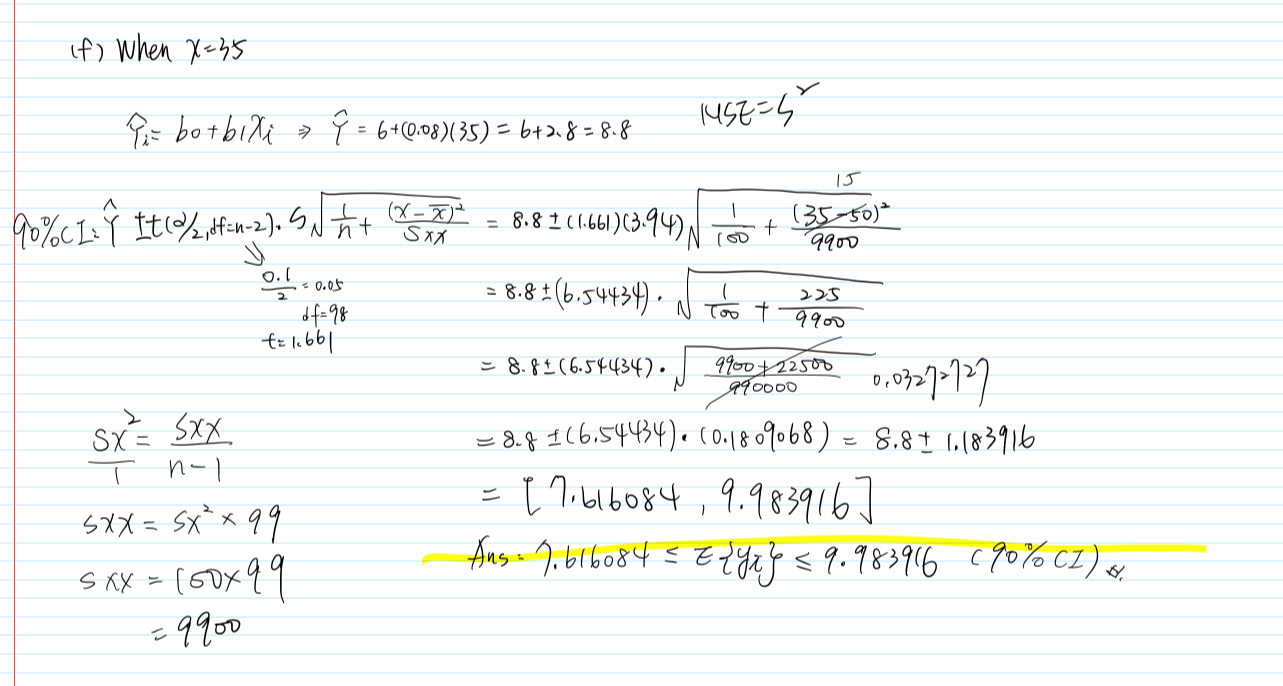 (f) When x=35
MSE=S²
Ŷi = b0+b1Xi ⇒ Ŷ = 6+(0.08)(35) = 6+2.8 = 8.8
90% CI: Ŷ ± t(α/2, df=n-2) · S√(1/n + (x-x̄)²/Sxx) = 8.8 ± (1.661)(3.94)√(1/100 + (35-50)²/9900)
15
0.1/2 = 0.05
df=98
t=1.661
= 8.8 ± (6.54434) · √(1/100 + 225/9900)
= 8.8 ± (6.54434) · √((9900+22500)/990000) 0.03272727
= 8.8 ± (6.54434) · (0.1809068) = 8.8 ± 1.183916
= [7.616084, 9.983916]
Ans = 7.616084 ≤ E{yi} ≤ 9.983916 (90% CI)
Sx²/1 = Sxx/n-1
Sxx = Sx² × 99
Sxx = 100×99
= 9900